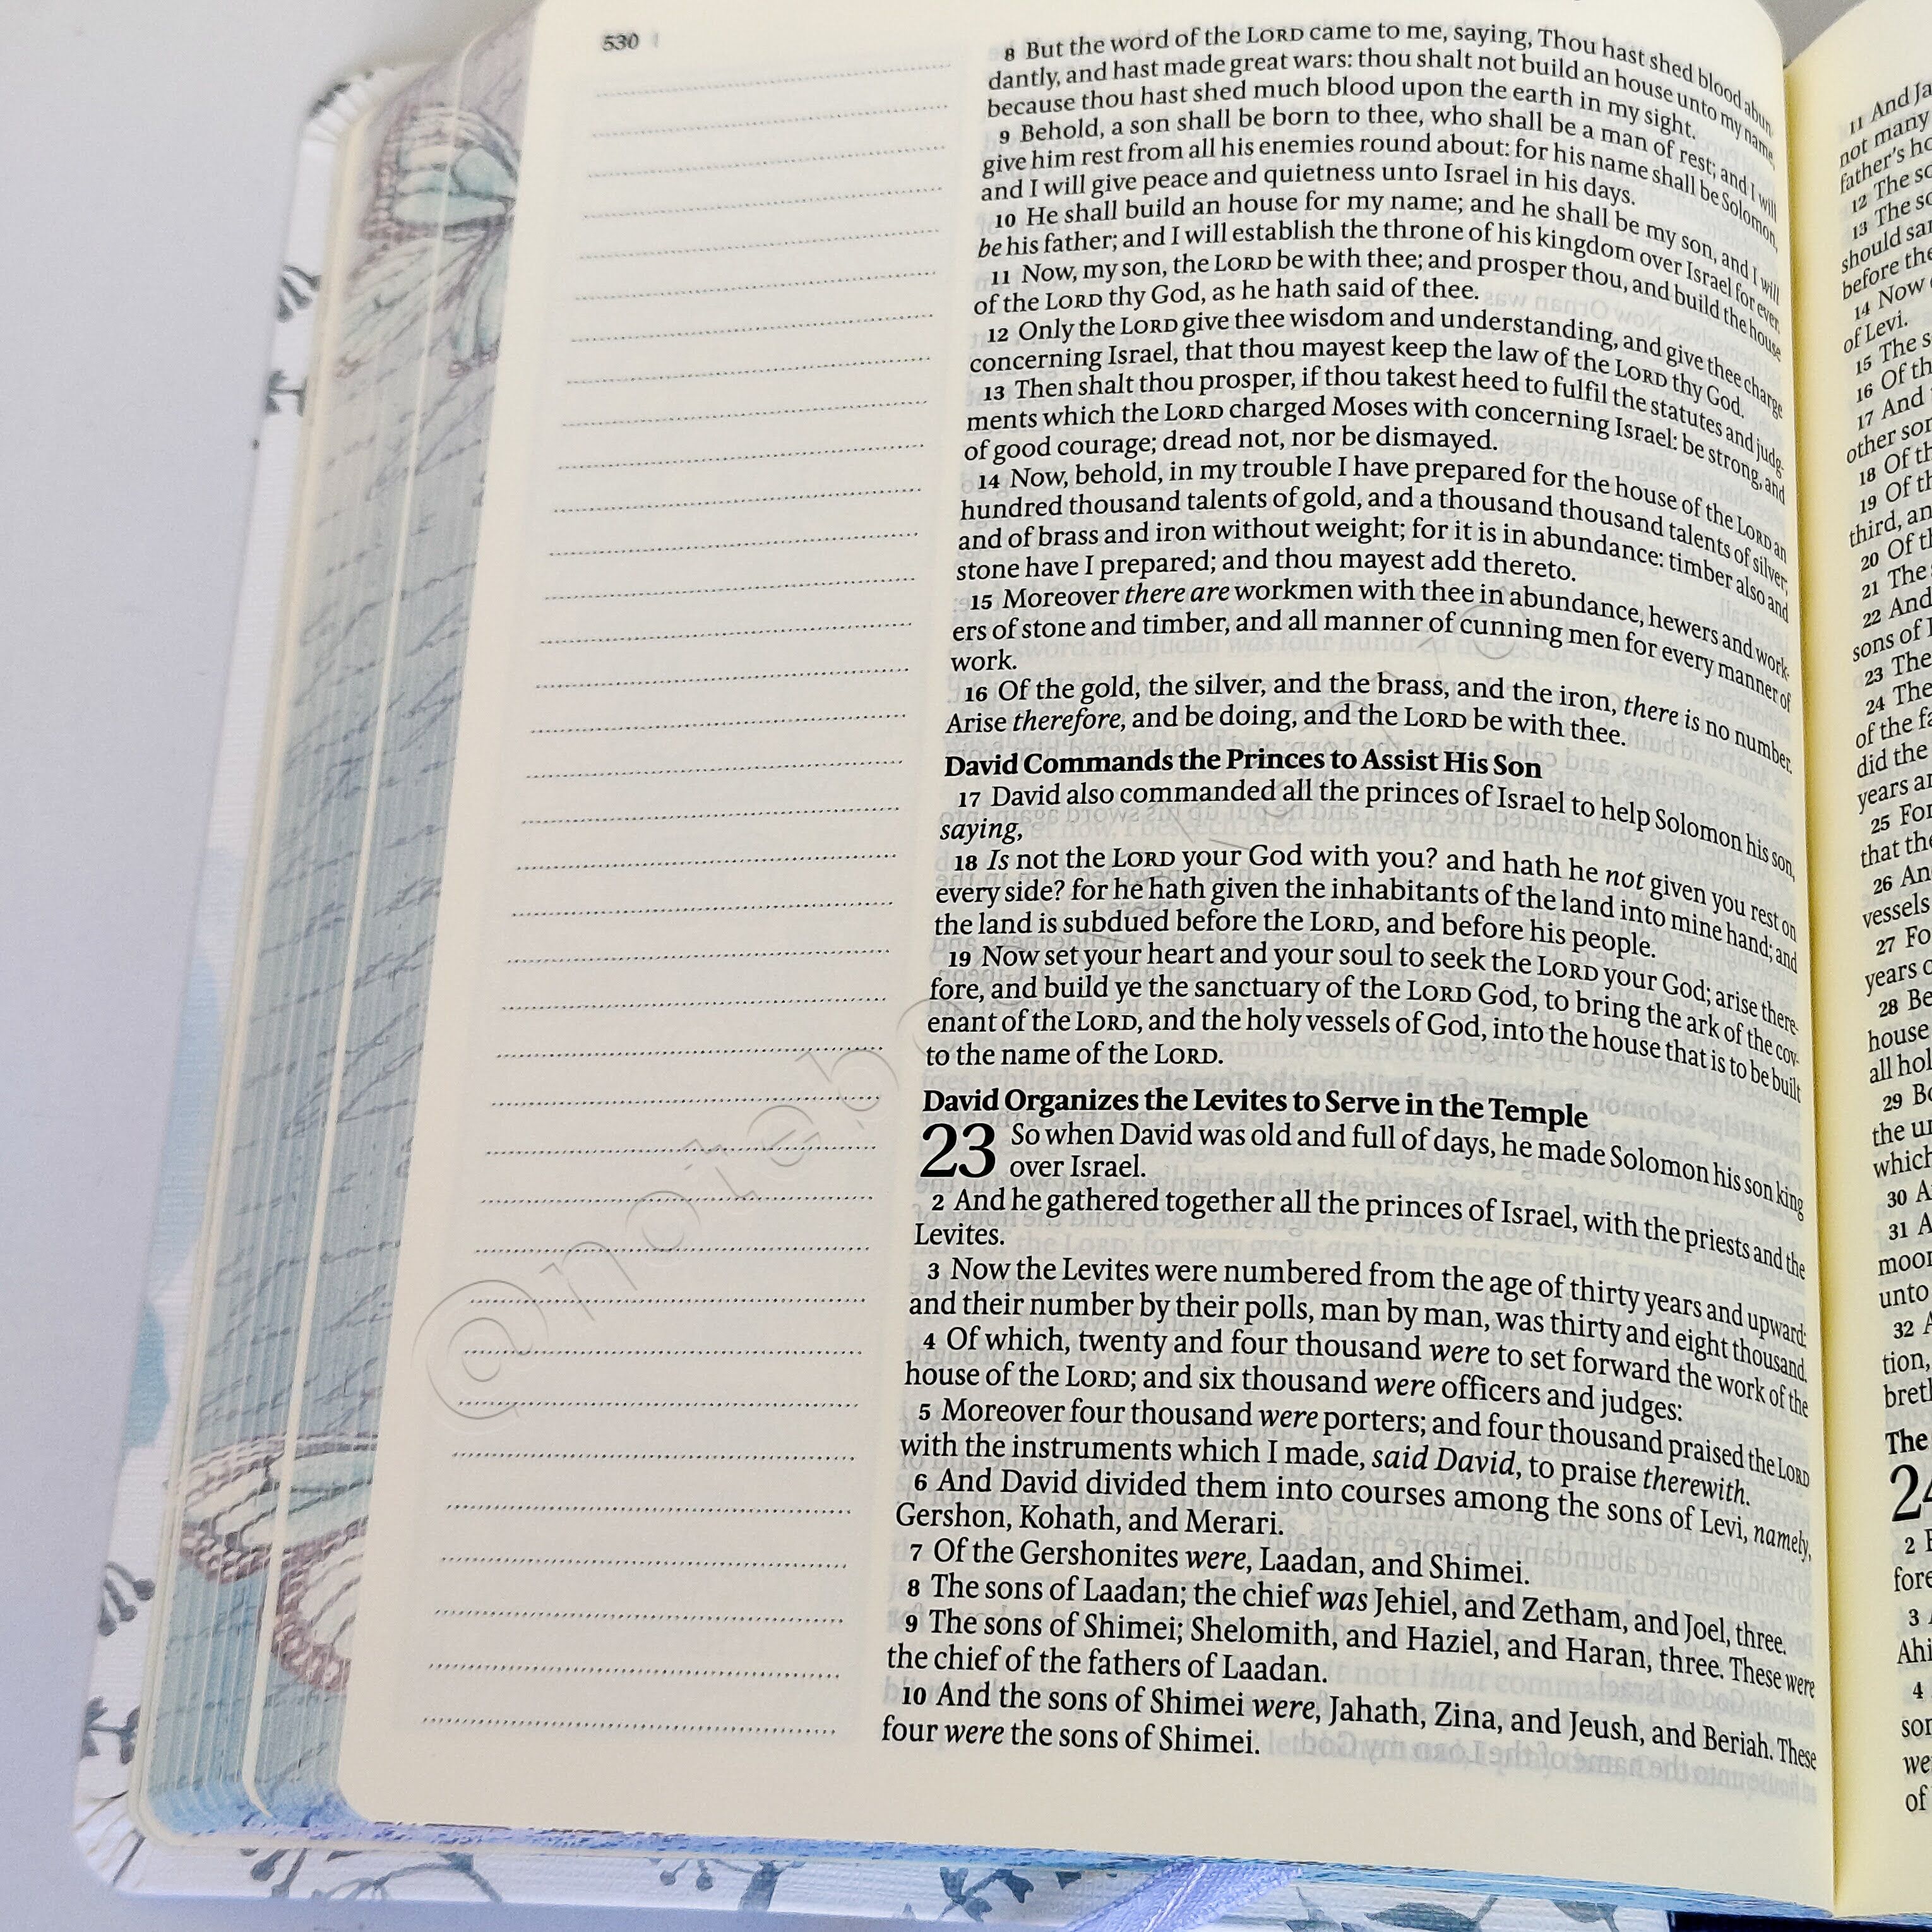 530
8 But the word of the LORD came to me, saying, Thou hast shed blood abun-
dantly, and hast made great wars: thou shalt not build an house unto my name,
because thou hast shed much blood upon the earth in my sight.
9 Behold, a son shall be born to thee, who shall be a man of rest; and I will
give him rest from all his enemies round about: for his name shall be Solomon,
and I will give peace and quietness unto Israel in his days.
10 He shall build an house for my name; and he shall be my son, and I will
be his father; and I will establish the throne of his kingdom over Israel for ever.
11 Now, my son, the LORD be with thee; and prosper thou, and build the house
of the LORD thy God, as he hath said of thee.
12 Only the LORD give thee wisdom and understanding, and give thee charge
concerning Israel, that thou mayest keep the law of the LORD thy God.
13 Then shalt thou prosper, if thou takest heed to fulfil the statutes and judg-
ments which the LORD charged Moses with concerning Israel: be strong, and
of good courage; dread not, nor be dismayed.
14 Now, behold, in my trouble I have prepared for the house of the LORD an
hundred thousand talents of gold, and a thousand thousand talents of silver;
and of brass and iron without weight; for it is in abundance: timber also and
stone have I prepared; and thou mayest add thereto.
15 Moreover there are workmen with thee in abundance, hewers and work-
ers of stone and timber, and all manner of cunning men for every manner of
work.
16 Of the gold, the silver, and the brass, and the iron, there is no number.
Arise therefore, and be doing, and the LORD be with thee.
David Commands the Princes to Assist His Son
17 David also commanded all the princes of Israel to help Solomon his son,
saying,
18 Is not the LORD your God with you? and hath he not given you rest on
every side? for he hath given the inhabitants of the land into mine hand; and
the land is subdued before the LORD, and before his people.
19 Now set your heart and your soul to seek the LORD your God; arise there-
fore, and build ye the sanctuary of the LORD God, to bring the ark of the cov-
enant of the LORD, and the holy vessels of God, into the house that is to be built
to the name of the LORD.
David Organizes the Levites to Serve in the Temple
23 So when David was old and full of days, he made Solomon his son king
over Israel.
2 And he gathered together all the princes of Israel, with the priests and the
Levites.
3 Now the Levites were numbered from the age of thirty years and upward:
and their number by their polls, man by man, was thirty and eight thousand.
4 Of which, twenty and four thousand were to set forward the work of the
house of the LORD; and six thousand were officers and judges:
5 Moreover four thousand were porters; and four thousand praised the LORD
with the instruments which I made, said David, to praise therewith.
6 And David divided them into courses among the sons of Levi, namely,
Gershon, Kohath, and Merari.
7 Of the Gershonites were, Laadan, and Shimei.
8 The sons of Laadan; the chief was Jehiel, and Zetham, and Joel, three.
9 The sons of Shimei; Shelomith, and Haziel, and Haran, three. These were
the chief of the fathers of Laadan.
10 And the sons of Shimei were, Jahath, Zina, and Jeush, and Beriah. These
four were the sons of Shimei.
11 And Ja
not many
father's ho
12 The so
13 The so
should sa
before the
14 Now
of Levi.
15 The s
16 Of th
17 And
other sor
18 Of th
19 Of th
third, an
20 Of th
21 The
22 And
sons of
23 The
24 The
of the fa
did the
years a
25 For
that the
26 An
vessels
27 Fo
years o
28 Be
house
all hol
29 Bo
the u
which
30 A
31 A
moor
unto
32 A
tion,
bret
The
24
2
fore
3
Ahi
4
sor
we
of